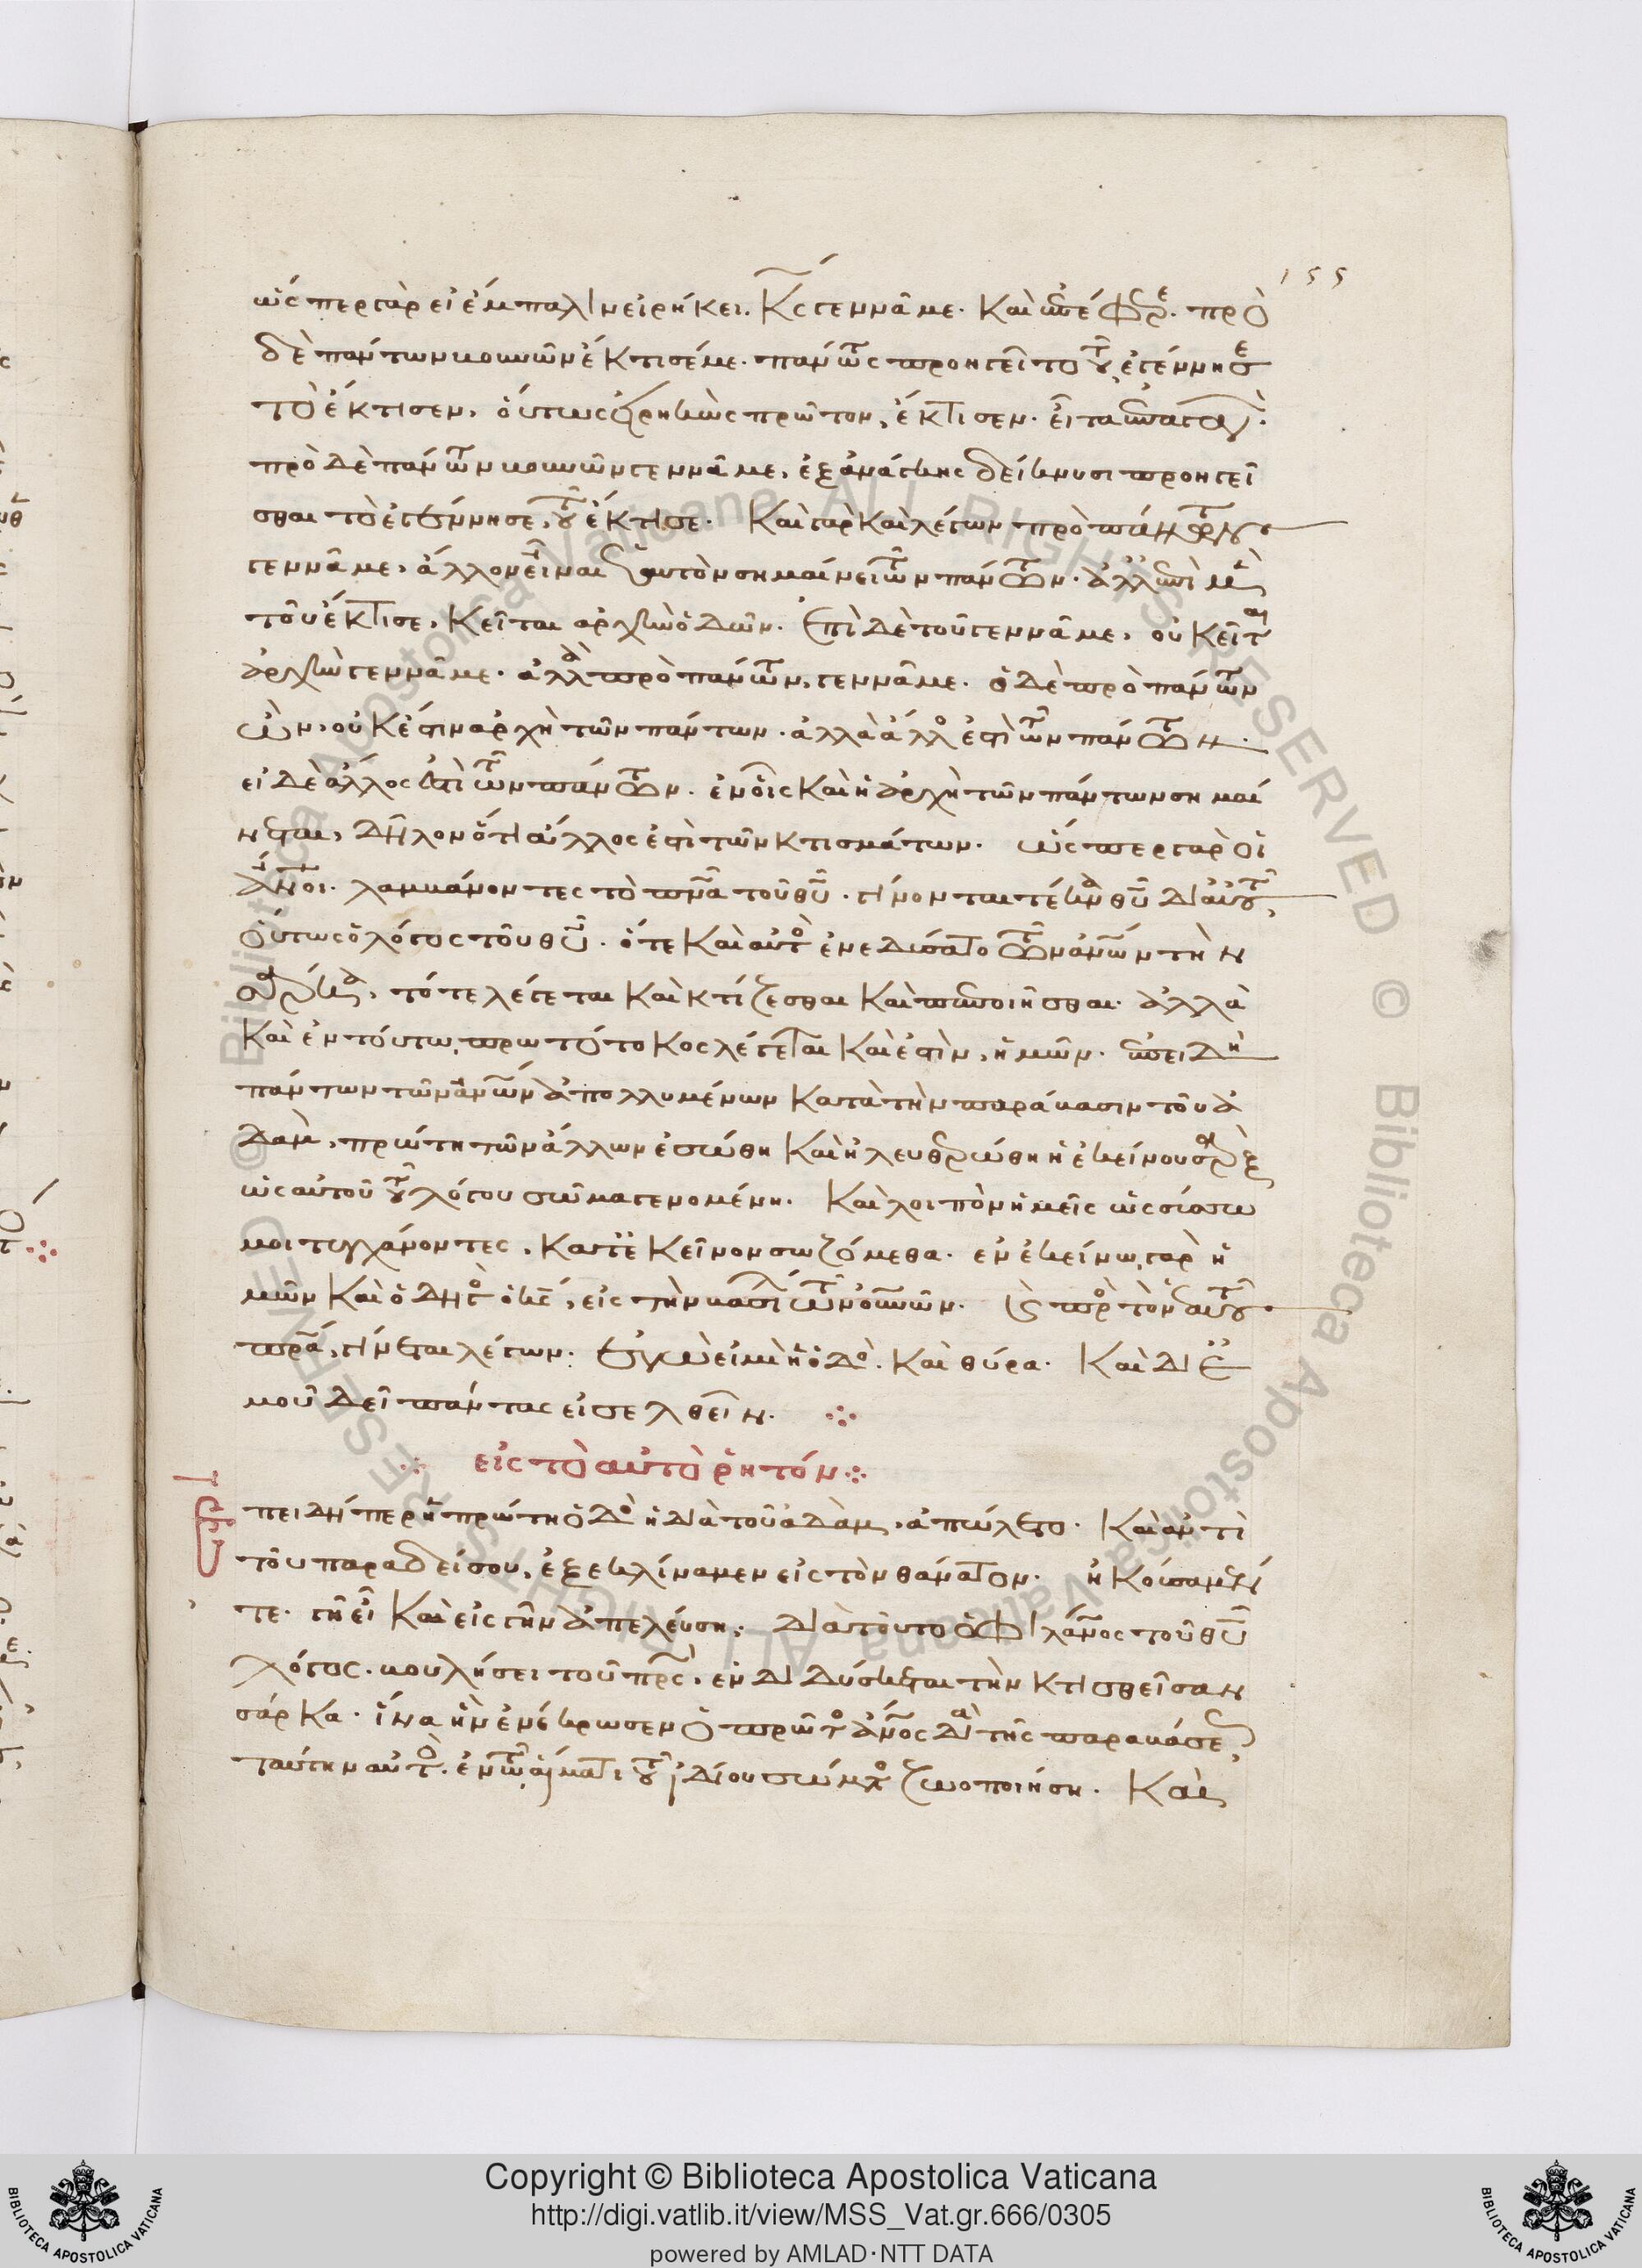 155
ὥσπερ γὰρ εἰ ἔμπαλιν εἰρήκει. Κς γεννᾶ με. καὶ ἐπέφερε. πρὸ
δὲ πάντων βουνῶν ἔκτισέ με. πάντως προηγεῖτο τοῦ ἐγέννησε
τὸ ἔκτισεν, οὕτως εἰρηκὼς πρῶτον, ἔκτισεν. εἶτα ἐπαγαγὼν.
πρὸ δὲ πάντων βουνῶν γεννᾶ με, ἐξ ἀνάγκης δείκνυσι προηγεῖ
σθαι τὸ ἐγέννησε, τοῦ ἔκτισε. Καὶ γὰρ καὶ λέγων πρὸ πάντων
γεννᾶ με, ἄλλον εἶναι ἑαυτὸν σημαίνει τῶν πάντων. ἀλλ' ἐπὶ μὲν
τοῦ ἔκτισε, κεῖται ἀρχὴν ὁδῶν. ἐπὶ δὲ τοῦ γεννᾶ με, οὐ κεῖται
ἀρχὴν γεννᾶ με. ἀλλὰ πρὸ πάντων, γεννᾶ με. ὁ δὲ πρὸ πάντων
ὢν, οὐκ ἔστιν ἀρχὴ τῶν πάντων. ἀλλὰ ἄλλος ἐστὶ τῶν πάντων.
εἰ δὲ ἄλλος ἐστὶ τῶν πάντων. ἐν οἷς καὶ ἡ ἀρχὴ τῶν πάντων σημαί
νεται, δῆλον ὅτι ἄλλος ἐστὶ τῶν κτισμάτων. ὥσπερ γὰρ οἱ
ἄνοι. λαμβάνοντες τὸ πνᾶ τοῦ θῦ. γίνονται τέκνα θῦ δι' αὐτοῦ,
οὕτως ὁ λόγος τοῦ θῦ. ὅτε καὶ αὐτὸς ἐνεδύσατο τῶν ἀνῶν τὴν
σάρκα, τότε λέγεται καὶ κτίζεσθαι καὶ πεποιῆσθαι. ἀλλὰ
καὶ ἐν τούτω, πρωτότοκος λέγεται καὶ ἔστιν, ἡμῶν. ἐπειδὴ
πάντων τῶν ἀνῶν ἀπολλυμένων κατὰ τὴν παράβασιν τοῦ ἀ
δὰμ, πρώτη τῶν ἄλλων ἐσώθη καὶ ἠλευθερώθη ἡ ἐκείνου σὰρξ
ὡς αὐτοῦ τοῦ λόγου σῶμα γενομένη. Καὶ λοιπὸν ἡμεῖς ὡς σύσσω
μοι τυγχάνοντες, κατ' ἐκεῖνον σωζόμεθα. ἐν ἐκείνω, γὰρ ἡ
μῶν καὶ ὁδηγὸς ὁ κς, εἰς τὴν βασιλείαν τῶν οὐνῶν. καὶ πρὸς τὸν ἑαυτοῦ
πρᾶ, γίνεται λέγων. ἐγώ εἰμι ἡ ὁδὸς. καὶ θύρα. Καὶ δι' ἐ
μοῦ δεῖ πάντας εἰσελθεῖν.
εἰς τὸ αὐτὸ ῥητόν
Ἐπειδήπερ ἡ πρώτη ὁδὸς ἡ διὰ τοῦ ἀδὰμ, ἀπώλετο. Καὶ ἀντὶ
τοῦ παραδείσου, ἐξεκλίναμεν εἰς τὸν θάνατον. ἠκούσαμέν
τε. γῆ εἶ καὶ εἰς γῆν ἀπελεύση. Διὰ τοῦτο ὁ φιλάνος τοῦ θῦ
λόγος. βουλήσει τοῦ πρς, ἐνδιδύσκεται τὴν κτισθεῖσαν
σάρκα. ἵνα ἣν ἐνέκρωσεν ὁ πρῶτος ἄνος διὰ τῆς παραβάσεως,
ταύτην αὐτὸς. ἐν τῶ αἵματι τοῦ ἰδίου σώματος ζωοποιήση. Καὶ
Copyright © Biblioteca Apostolica Vaticana
http://digi.vatlib.it/view/MSS_Vat.gr.666/0305
powered by AMLAD·NTT DATA